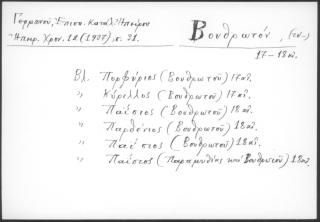 Γερμανού, Επισκ. Κατάλ. Ηπείρου
Ηπειρ. Χρον. 12 (1937) σ. 21.
Βουθρωτόν,
17 - 18 αι.
Βλ. Πορφύριος (Βουθρωτού) 17 αι.
» Κύριλλος (Βουθρωτού) 17 αι.
» Παΐσιος (Βουθρωτού) 18 αι.
» Παρθένιος (Βουθρωτού) 18 αι.
» Παΐσιος (Βουθρωτού) 18 αι.
» Παΐσιος (Παραμυθίας και Βουθρωτού) 18 αι.